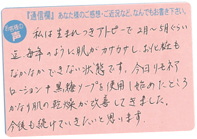 お客様の声
『通信欄』あなた様のご感想・ご近況など、なんでもお書き下さい。
私は生まれつきアトピーで2月～5月ぐらい
迄毎年のように肌がカサカサし、お化粧も
なかなかできない状態です。今回リモネ
ローションや黒糖ソープを使用し始めたところ
かなり肌の乾燥が改善してきました。
今後も続けていきたいと思います。